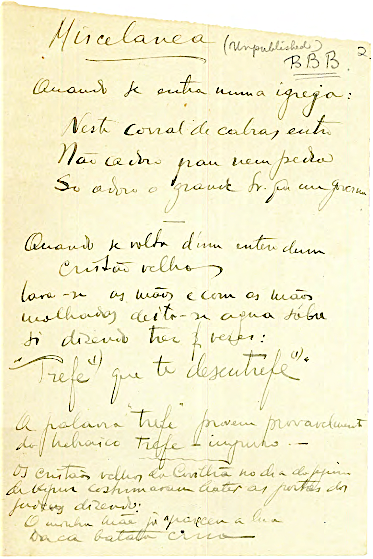 Miscelanea (unpublished) BBB. 2
Quando se entra numa igreja:
Neste corral de cabras entro
Não adoro pau nem pedra
Só adoro o grande Sr. que governa
Quando se volta d'um enterro dum
cristão velho
lava-se as mãos e com as mãos
molhadas deita-se agua sôbre
si dizendo tres vezes:
"Trefe 1) que te desentrefe" 1).
A palavra "trefe" provem provavelmente
do hebraico trefe - impuro. —
Os cristãos velhos da Covilhã no dia de
costumavam bater as portas dos
judeus dizendo:
O minha mãe já a lua